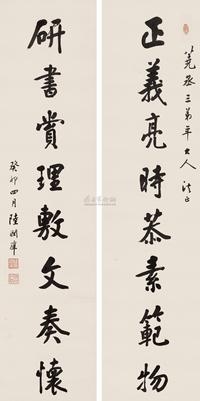 正義亮時恭素範物
筦丞三弟年大人法正
研書賞理敷文奏懷
癸卯四月陸潤庠